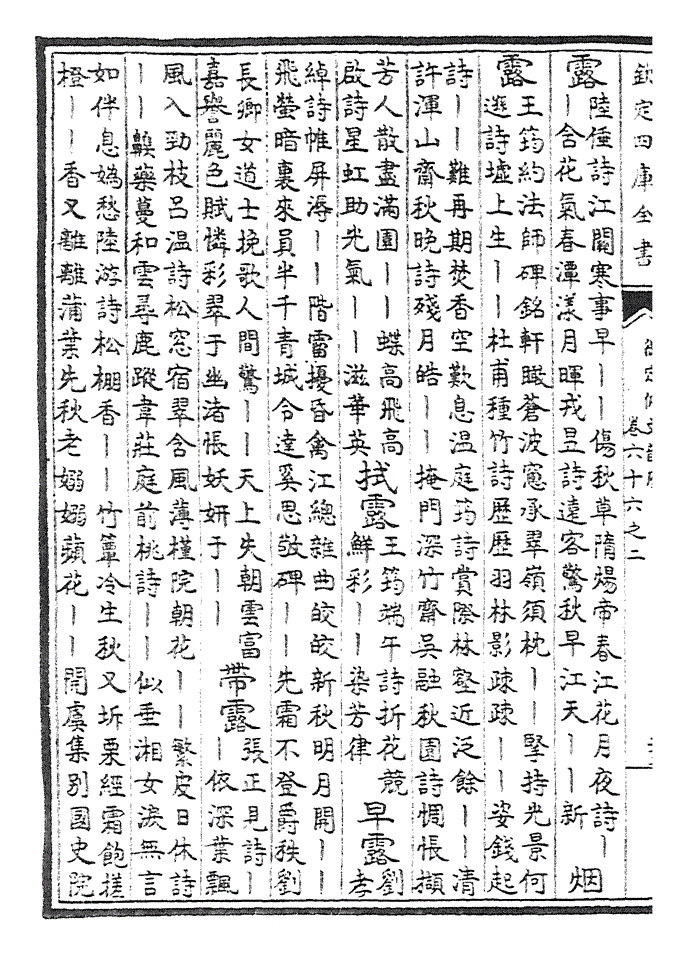 欽定四庫全書
御定佩文韻府
卷六十六之二
露
陸倕詩江關寒事早丨丨傷秋草隋煬帝春江花月夜詩丨
丨含花氣春潭漾月暉戎昱詩遠客驚秋早江天丨丨新
烟
露
王筠約法師碑銘軒瞰蒼波窻承翠嶺須枕丨丨堅持光景何
遜詩墟上生丨丨杜甫種竹詩歷歷羽林影疎疎丨丨姿錢起
詩丨丨難再期焚香空歎息溫庭筠詩賞際林壑近泛餘丨丨清
許渾山齋秋晚詩殘月皓丨丨掩門深竹齋吳融秋園詩惆悵擷
芳人散盡滿園丨丨蝶高飛高
啟詩星虹助光氣丨丨滋華英
拭露
王筠端午詩折花競
鮮彩丨丨染芳律
早露
劉
孝
綽詩帷屏溽丨丨階雷擾昏禽江總雜曲皎皎新秋明月開丨丨
飛螢暗裏來員半千青城令達奚思敬碑丨丨先霜不登爵秩劉
長卿女道士挽歌人間驚丨丨天上失朝雲富
嘉謩麗色賦憐彩翠于幽渚悵妖妍于丨丨
帶露
張正見詩丨
丨依深葉飄
風入勁枝呂温詩松窓宿翠含風薄槿院朝花丨丨繁皮日休詩
丨丨藥蔓和雲尋鹿蹤韋莊庭前桃詩丨丨似垂湘女淚無言
如伴息媯愁陸游詩松棚香丨丨竹簟冷生秋又坼栗經霜飽搓
橙丨丨香又離離蒲葉先秋老嫋嫋蘋花丨丨開虞集別國史院